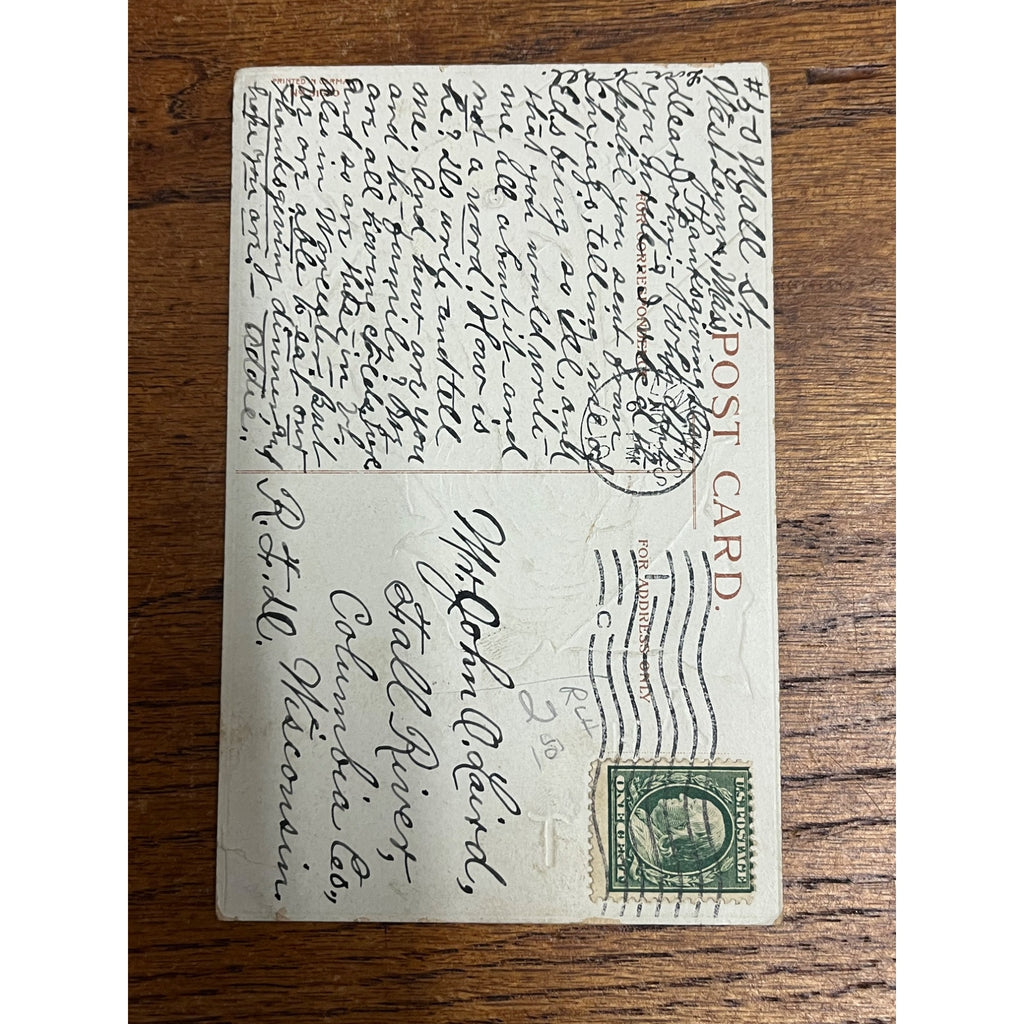 POST CARD.
PRINTED IN GERMANY
FOR CORRESPONDENCE
FOR ADDRESS ONLY
U.S. POSTAGE
ONE CENT
C
Wall St.
West Lynn, Mass.
Thanksgiving Day.
Dear Johny:- Why
I rec'd the
postal you sent from
Chicago, telling me of
being so ill, and
that you would write
me all about it - and
not a word! How is
he? Do write and tell
me, and how are you
and the family? We
are all
and so on this in
also in Worcester, but
we are able to eat our
Thanksgiving dinner, and
hope you are. - Addie.
Mr. John A. Laird,
Fall River,
Columbia Co.,
Wisconsin.
R.F.D.
2 50